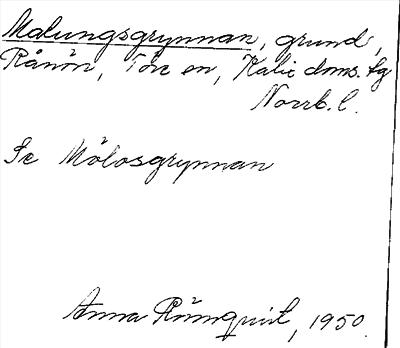 Malungsgrynnan, grund,
Rånön, Töre sn, Kalix doms. lg
Norrb. l.
Se Mölosgrynnan
Anna Rönnquist, 1950.